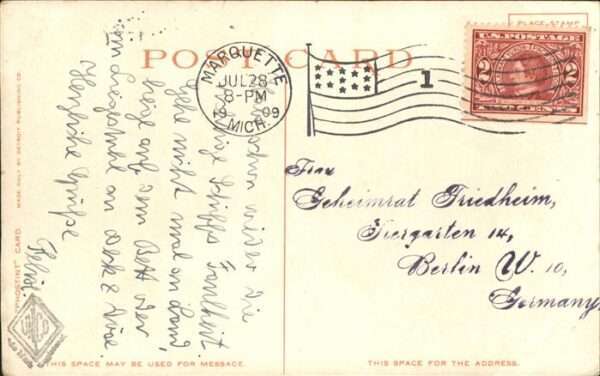 PLACE STAMP
POST CARD
MARQUETTE
JUL 28
8-PM
1909
MICH.
1
U.S. POSTAGE
2 2
TWO CENTS
wieder die
Schiffs Faulheit
Gehe nicht mal an Land,
liege auf dem Bett oder
im Liegestuhl an Deck &
Herzliche Grüße
Felix
Frau
Geheimrat Friedheim,
Tiergarten 14,
Berlin W. 10,
Germany.
"PHOSTINT" CARD
MADE ONLY BY DETROIT PUBLISHING CO.
THIS SPACE MAY BE USED FOR MESSAGE.
THIS SPACE FOR THE ADDRESS.